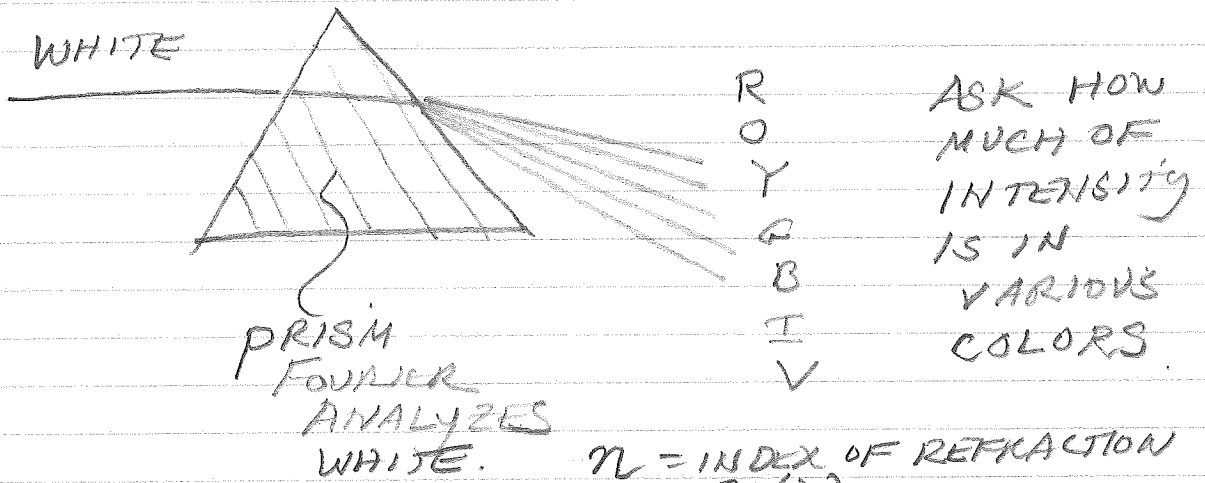 WHITE
R
O
Y
G
B
I
V
ASK HOW
MUCH OF
INTENSITY
IS IN
VARIOUS
COLORS.
PRISM
FOURIER
ANALYZES
WHITE.
n = INDEX OF REFRACTION